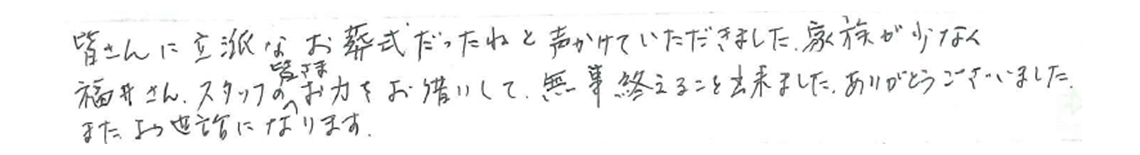 皆さんに立派なお葬式だったねと声かけていただきました。家族が少なく
福井さん、スタッフの皆さまお力をお借りして、無事終えること出来ました。ありがとうございました。
また、お世話になります。